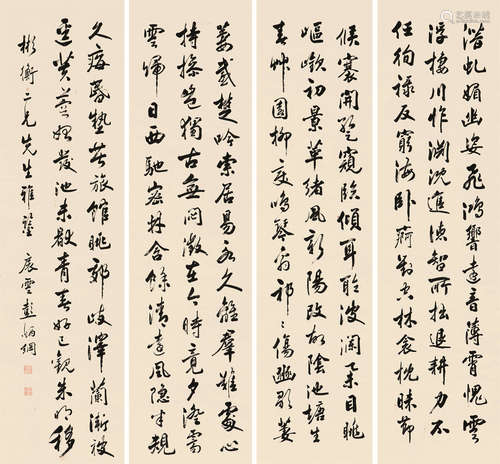 潛虬媚幽姿飛鴻響遠音薄霄愧雲
浮棲川怍淵沈進德智所拙退耕力不
任徇祿反窮海卧痾對空林衾枕昧節
候褰開暫窺臨傾耳聆波瀾舉目眺
嶇嶔初景革緒風新陽改故陰池塘生
春艸園柳變鳴祁〻傷豳歌萋
萋感楚吟索居易永久離羣難處心
持操豈獨古無悶徵在今時竟夕澄霽
雲歸日西馳密林含餘清遠風隱半規
久痗昏墊苦旅館眺郊歧澤蘭漸被
逕芙蓉始發池未厭青春好已觀朱明移
彬衡二兄先生雅鑒 展雲彭炳綱